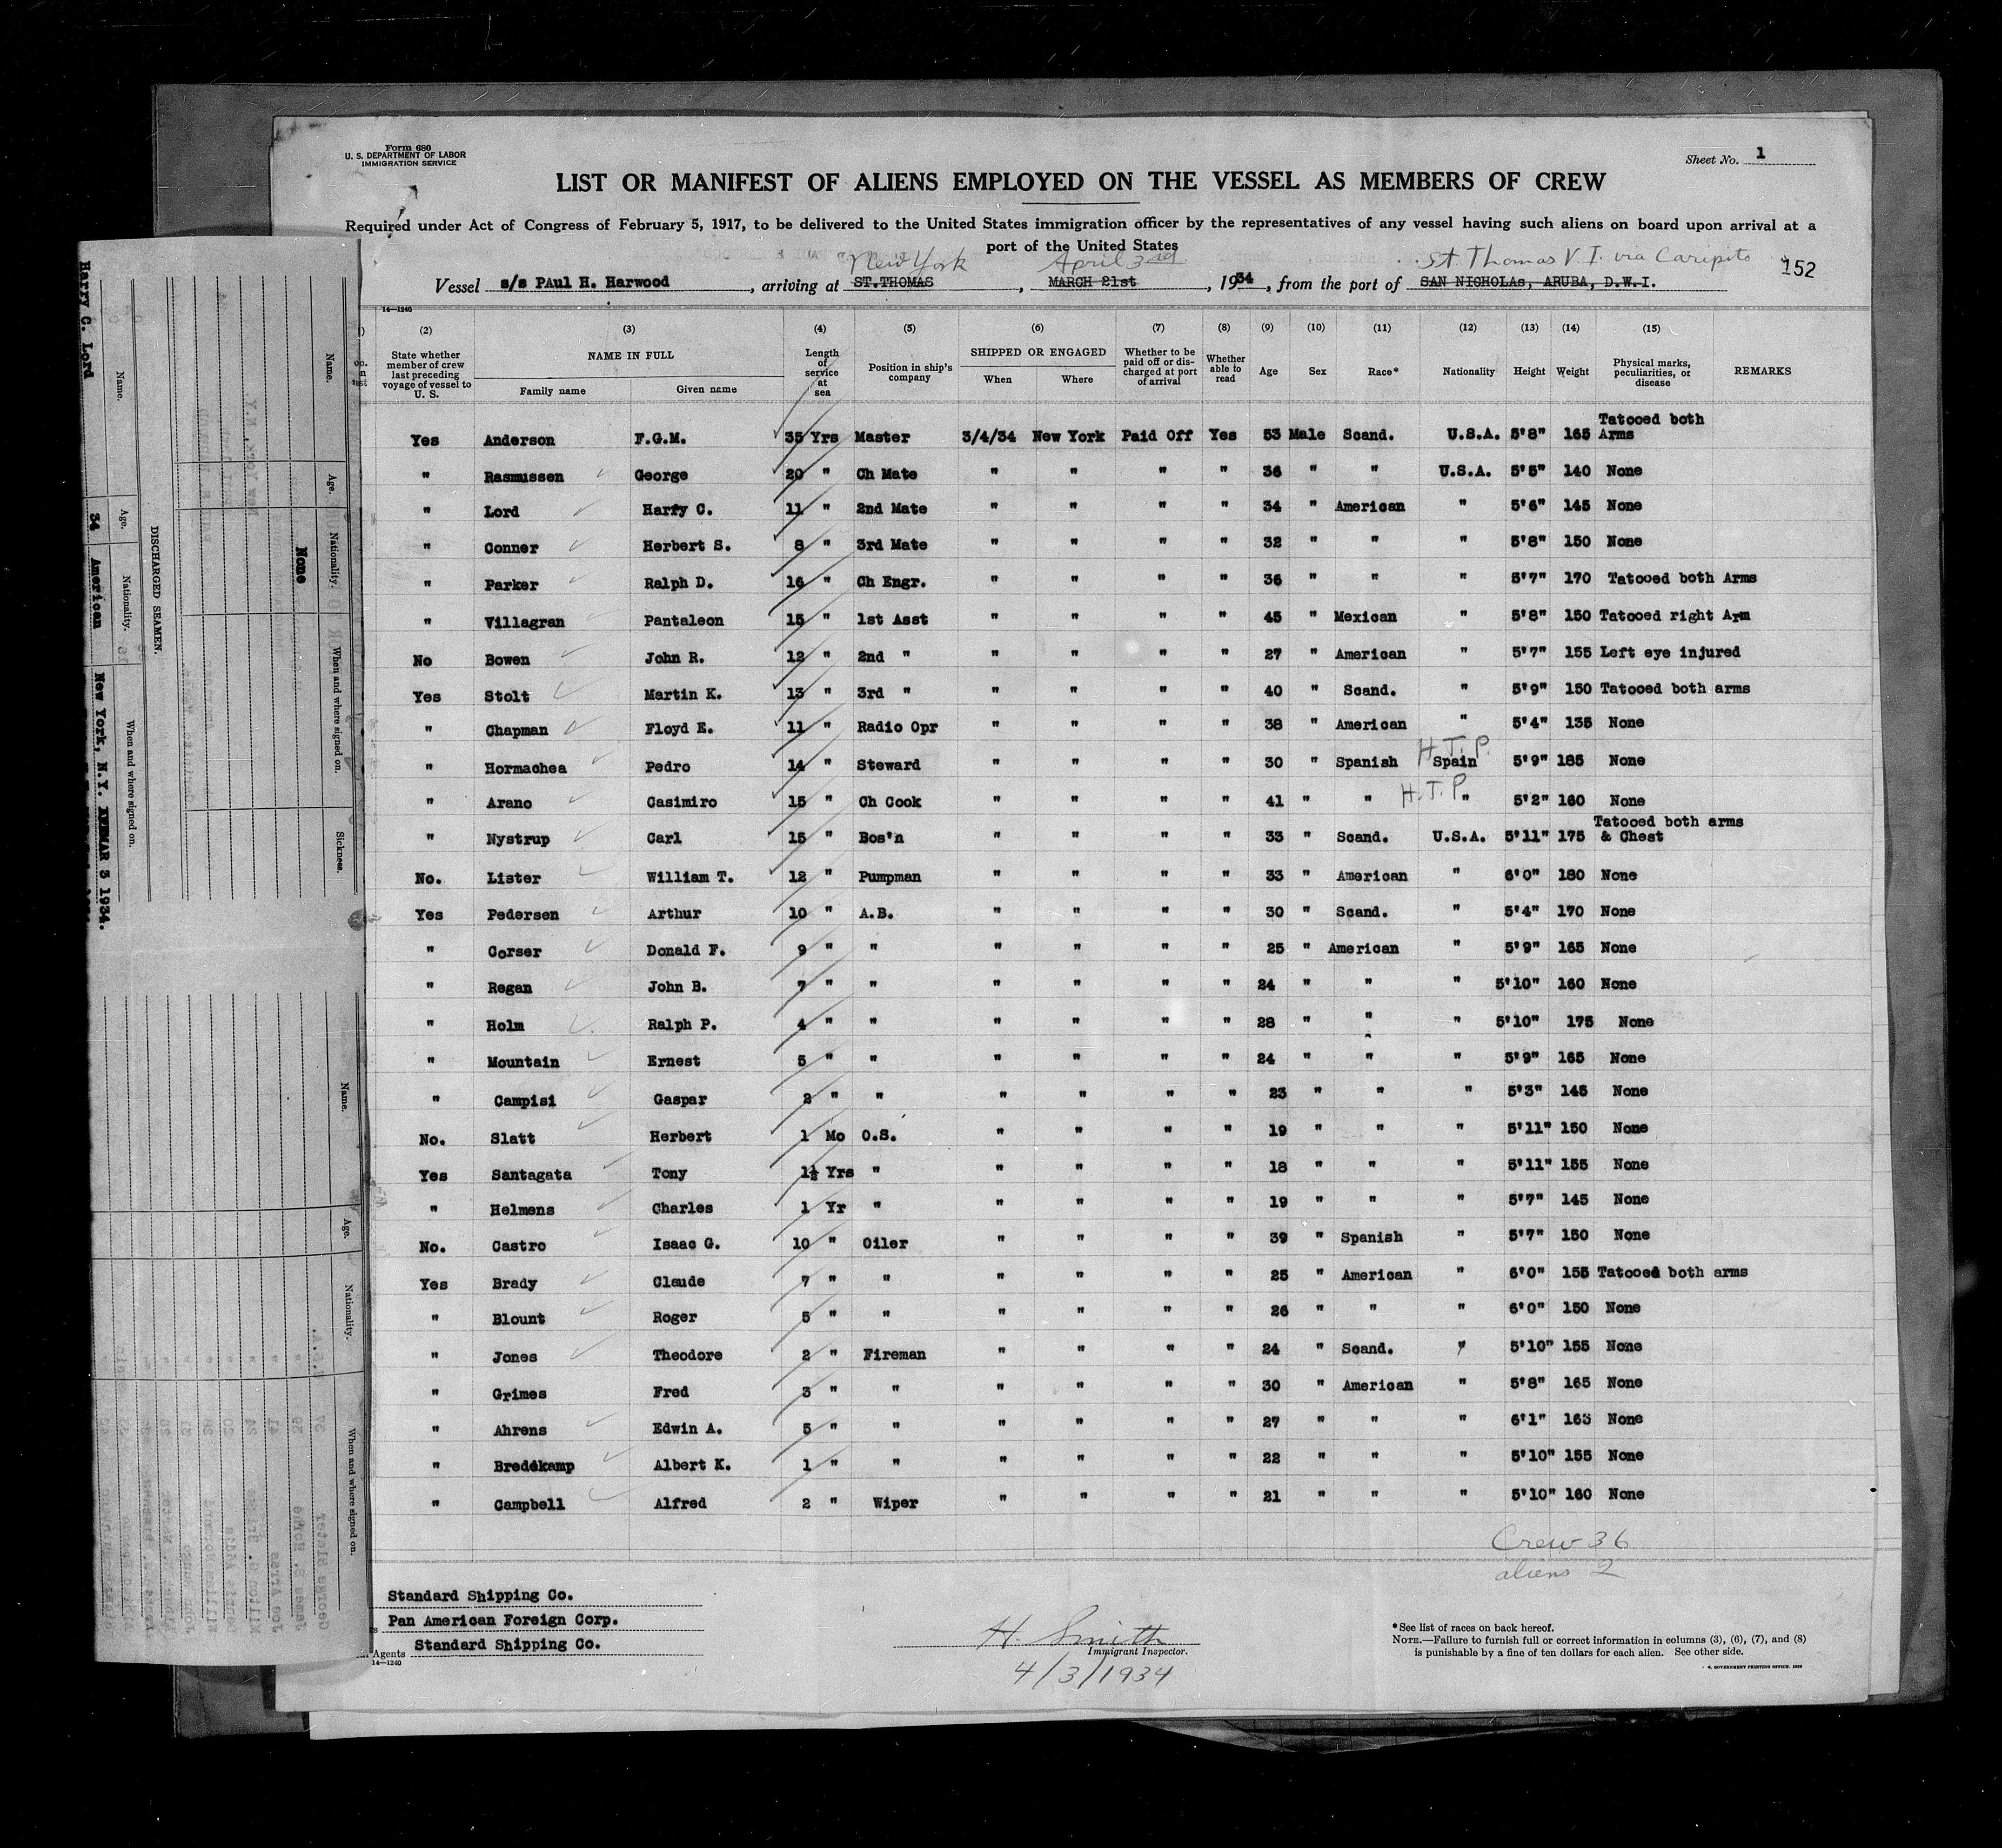 Form 680
U. S. DEPARTMENT OF LABOR
IMMIGRATION SERVICE
Sheet No. 1
LIST OR MANIFEST OF ALIENS EMPLOYED ON THE VESSEL AS MEMBERS OF CREW
Required under Act of Congress of February 5, 1917, to be delivered to the United States immigration officer by the representatives of any vessel having such aliens on board upon arrival at a
port of the United States
New York April 3rd St. Thomas V. I. via Caripito
Vessel s/s PAul H. Harwood, arriving at ST.THOMAS, MARCH 21st, 1934, from the port of SAN NICHOLAS, ARUBA, D.W.I. 152
14—1240
(2) (3) (4) (5) (6) (7) (8) (9) (10) (11) (12) (13) (14) (15)
State whether member of crew last preceding voyage of vessel to U. S. NAME IN FULL Family name Given name Length of service at sea Position in ship's company SHIPPED OR ENGAGED When Where Whether to be paid off or discharged at port of arrival Whether able to read Age Sex Race* Nationality Height Weight Physical marks, peculiarities, or disease REMARKS
Yes Anderson F.G.M. 35 Yrs Master 3/4/34 New York Paid Off Yes 53 Male Scand. U.S.A. 5'8" 165 Tatooed both Arms
" Rasmussen George 20 " Ch Mate " " " " 36 " " U.S.A. 5'5" 140 None
" Lord Harry C. 11 " 2nd Mate " " " " 34 " American " 5'6" 145 None
" Conner Herbert S. 8 " 3rd Mate " " " " 32 " " " 5'8" 150 None
" Parker Ralph D. 16 " Ch Engr. " " " " 36 " " " 5'7" 170 Tatooed both Arms
" Villagran Pantaleon 15 " 1st Asst " " " " 45 " Mexican " 5'8" 150 Tatooed right Arm
No Bowen John R. 12 " 2nd " " " " " 27 " American " 5'7" 155 Left eye injured
Yes Stolt Martin K. 13 " 3rd " " " " " 40 " Scand. " 5'9" 150 Tatooed both arms
" Chapman Floyd E. 11 " Radio Opr " " " " 38 " American " 5'4" 135 None
" Hormachea Pedro 14 " Steward " " " " 30 " Spanish H.T.P. Spain 5'9" 185 None
" Arano Casimiro 15 " Ch Cook " " " " 41 " " H.T.P. " 5'2" 160 None
" Nystrup Carl 15 " Bos'n " " " " 33 " Scand. U.S.A. 5'11" 175 Tatooed both arms & Chest
No. Lister William T. 12 " Pumpman " " " " 33 " American " 6'0" 180 None
Yes Pedersen Arthur 10 " A.B. " " " " 30 " Scand. " 5'4" 170 None
" Corser Donald F. 9 " " " " " " 25 " American " 5'9" 165 None
" Regan John B. 7 " " " " " " 24 " " " 5'10" 160 None
" Holm Ralph P. 4 " " " " " " 28 " " " 5'10" 175 None
" Mountain Ernest 5 " " " " " " 24 " " " 5'9" 165 None
" Campisi Gaspar 2 " " " " " " 23 " " " 5'3" 145 None
No. Slatt Herbert 1 Mo O.S. " " " " 19 " " " 5'11" 150 None
Yes Santagata Tony 1½ Yrs " " " " " 18 " " " 5'11" 155 None
" Helmens Charles 1 Yr " " " " " 19 " " " 5'7" 145 None
No. Castro Isaac G. 10 " Oiler " " " " 39 " Spanish " 5'7" 150 None
Yes Brady Claude 7 " " " " " " 25 " American " 6'0" 155 Tatooed both arms
" Blount Roger 5 " " " " " " 26 " " " 6'0" 150 None
" Jones Theodore 2 " Fireman " " " " 24 " Scand. " 5'10" 155 None
" Grimes Fred 3 " " " " " " 30 " American " 5'8" 165 None
" Ahrens Edwin A. 5 " " " " " " 27 " " " 6'1" 165 None
" Bredekamp Albert K. 1 " " " " " " 22 " " " 5'10" 155 None
" Campbell Alfred 2 " Wiper " " " " 21 " " " 5'10" 160 None
Crew 36
aliens 2
Standard Shipping Co.
Pan American Foreign Corp.
Agents Standard Shipping Co.
14—1240
H. Smith
Immigrant Inspector.
4/3/1934
*See list of races on back hereof.
NOTE.—Failure to furnish full or correct information in columns (3), (6), (7), and (8)
is punishable by a fine of ten dollars for each alien. See other side.
Name. Age. Nationality. When and where signed on. Sickness.
None
DISCHARGED SEAMEN.
Name. Age. Nationality. When and where signed on.
Harry C. Lord 34 American New York, N.Y. MAR 3 1934.
Name. Age. Nationality. When and where signed on.